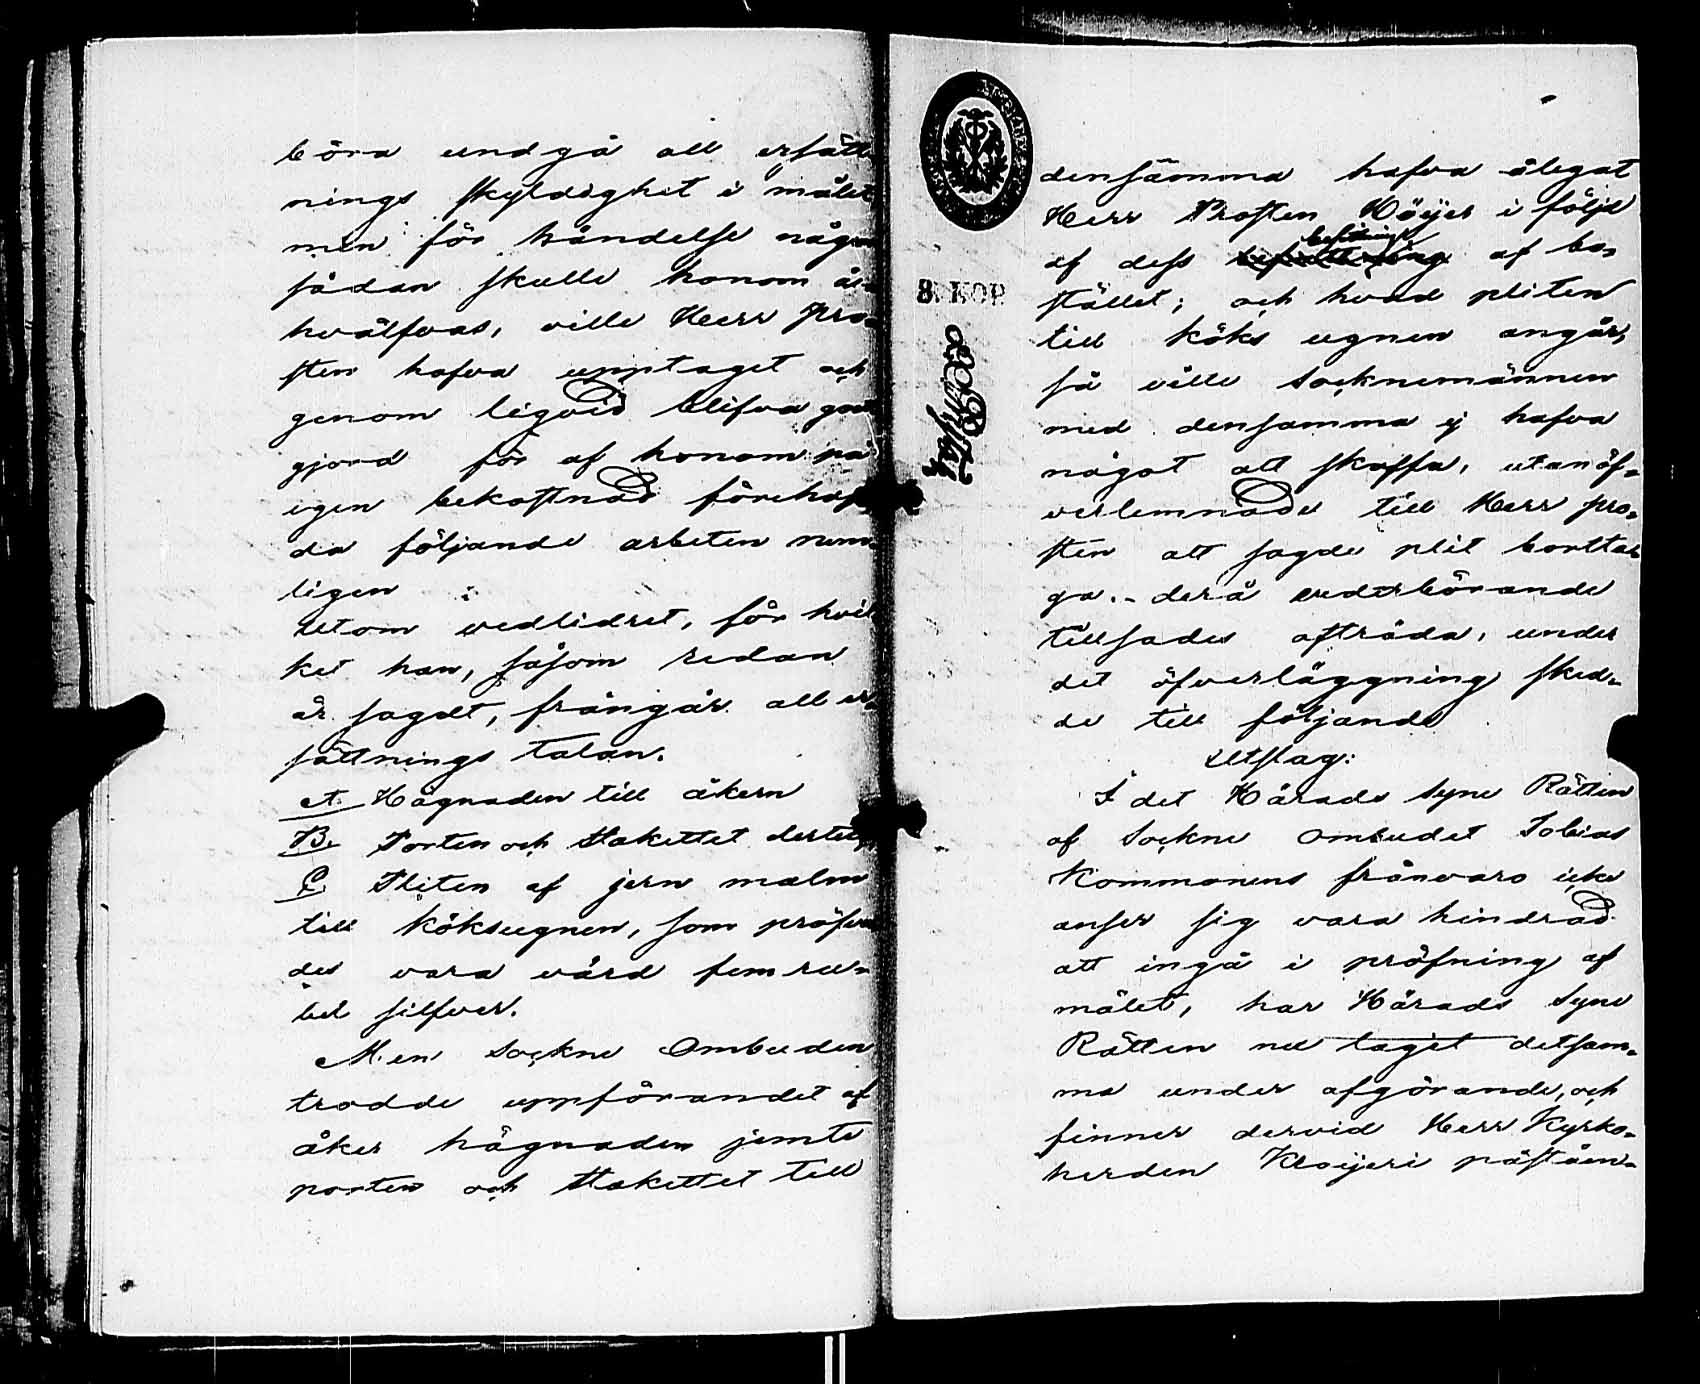 böra undgå all ersätt-
nings skyldighet i målet
men för händelse någon
sådan skulle honom å-
hvälfvas, ville Herr Pro-
sten hafva upptaget och
genom liqvid blifva god
gjord för af honom på
egen bekostnad förehaf-
da följande arbeten nem-
ligen :
utom vedlidret, för hvil
ket han, såsom redan
är sagdt, frångår all er-
sättnings talan.
A. Hägnaden till åkern
B. Porten och Stakettet dertill
C. Pliten af jern malm
till köksugnen, som pröfva
des vara värd fem ru-
bel silfver.
Men Sockne Ombuden
trodde uppförandet af
åker hägnaden jemte
porten och Stakettet till
8. KOP.
densamma hafva ålegat
Herr Prosten Höijer i följd
af dess besittning af bo-
stället; och hvad pliten
till köks ugnen angår,
så ville Socknemännen
med densamma ej hafva
något att skaffa, utan öf-
verlemnade till Herr pro-
sten att sagde plit bortta-
ga.- derå vederbörande
tillsades afträda, under
det öfverläggning sked-
de till följande
Utslag:
I det Härads Syne Rätten
af Sockne ombudet Tobias
Kommonens frånvaro icke
anser sig vara hindrad
att ingå i pröfning af
målet, har Härads Syne
Rätten nu taget detsam-
ma under afgörande, och
finner dervid Herr Kyrko-
herden Höijeri påståen-